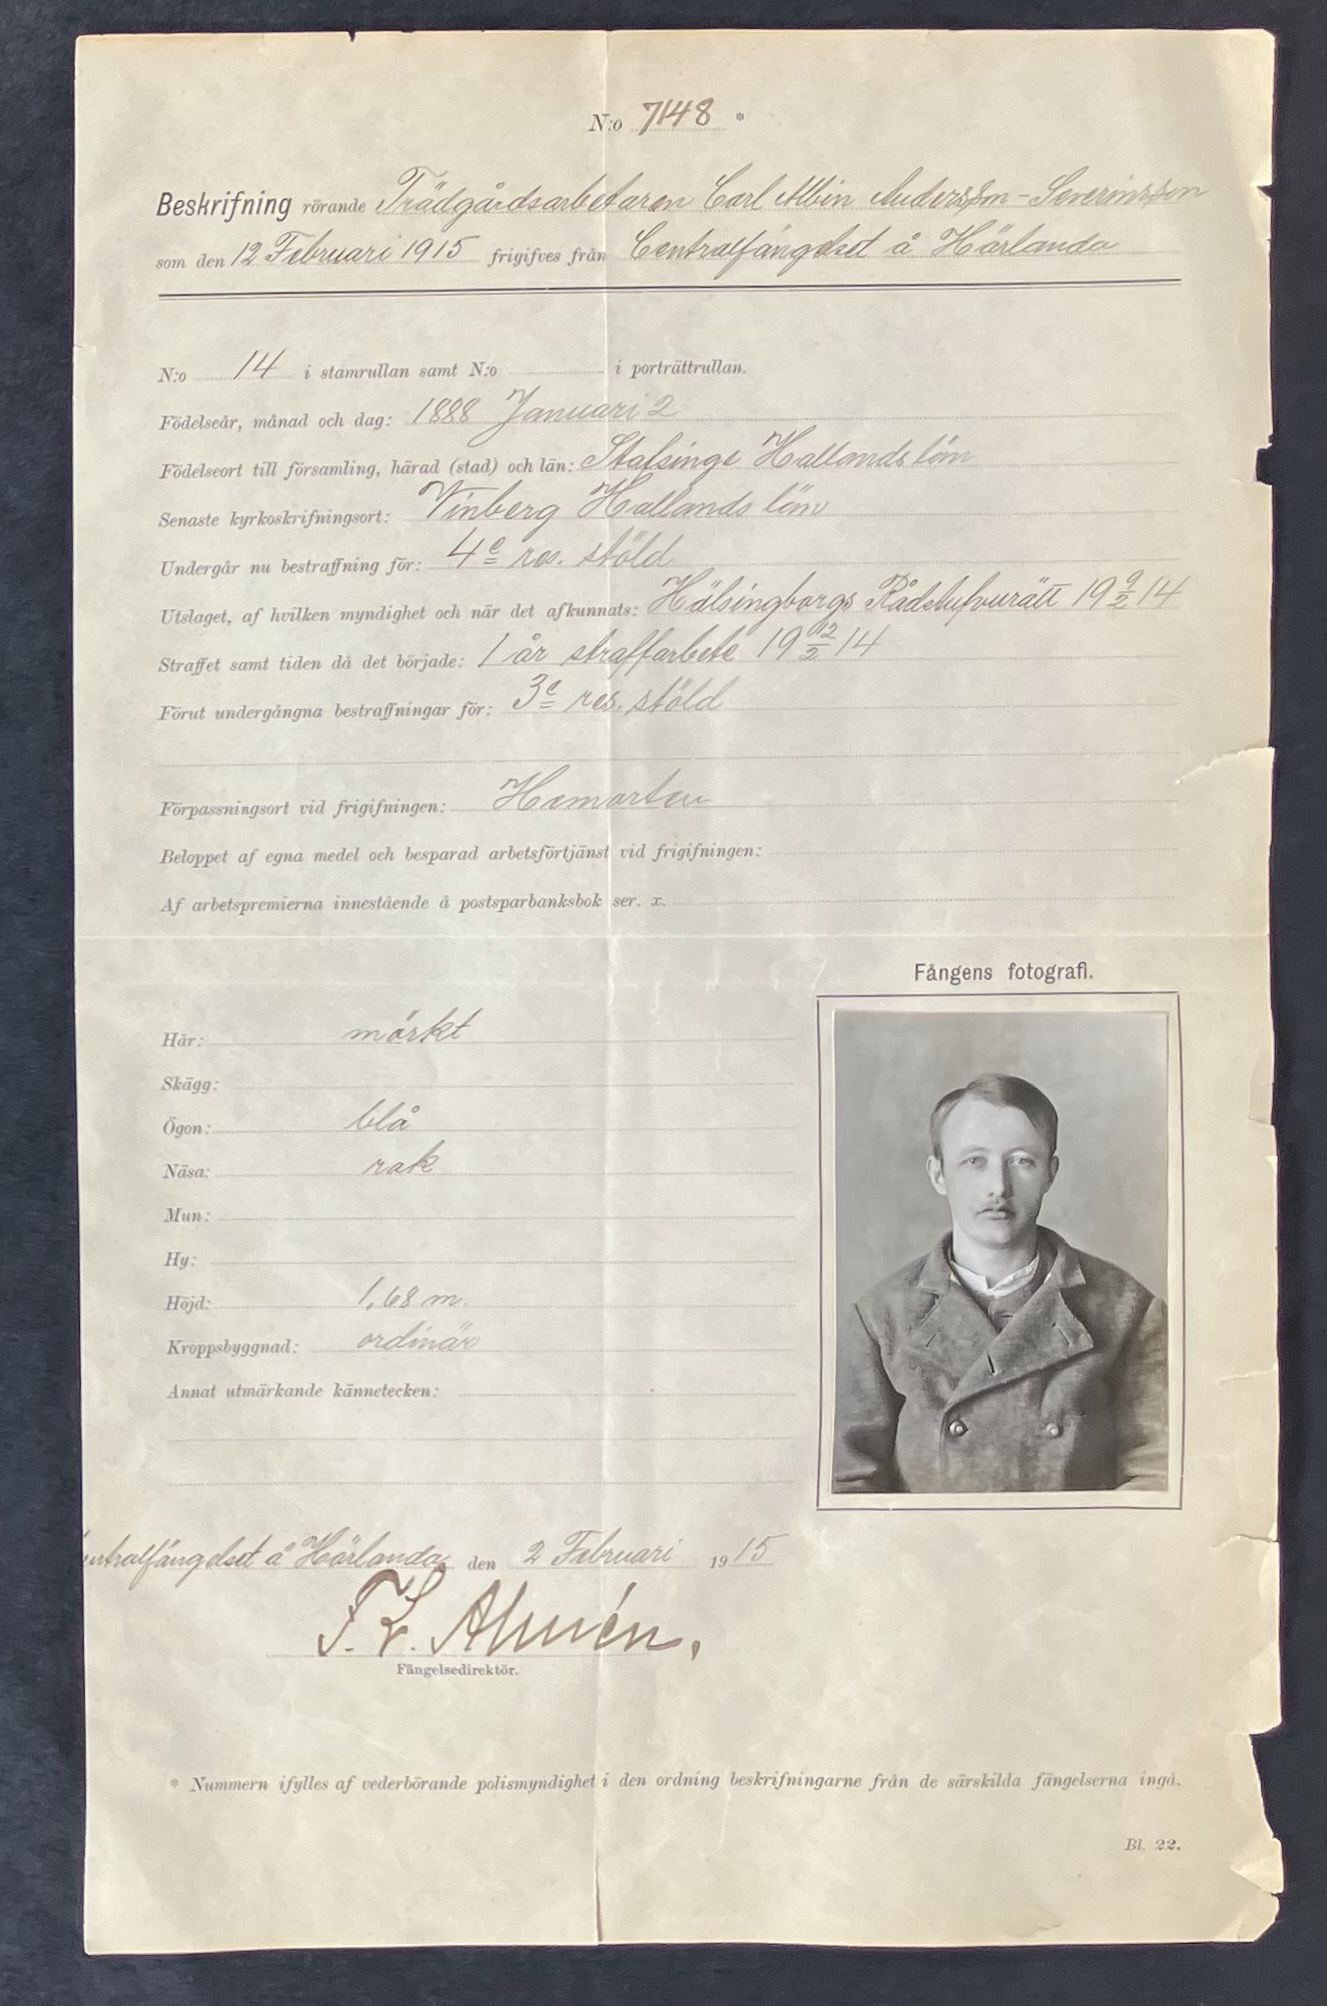 N:o 7148 *
Beskrifning rörande Trädgårdsarbetaren Carl Albin Andersson-Severinsson
som den 12 Februari 1915 frigifves från Centralfängelset å Härlanda
N:o 14 i stamrullan samt N:o i porträttrullan.
Födelseår, månad och dag: 1888 Januari 2
Födelseort till församling, härad (stad) och län: Stafsinge Hallands län
Senaste kyrkoskrifningsort: Vinberg Hallands län
Undergår nu bestraffning för: 4e res. stöld
Utslaget, af hvilken myndighet och när det afkunnats: Hälsingborgs Rådstufvurätt 19 9/2 14
Straffet samt tiden då det började: 1 år straffarbete 19 12/2 14
Förut undergångna bestraffningar för: 3e res. stöld
Förpassningsort vid frigifningen: Hemorten
Beloppet af egna medel och besparad arbetsförtjänst vid frigifningen:
Af arbetspremierna innestående å postsparbanksbok ser. x.
Fångens fotografi.
Hår: mörkt
Skägg:
Ögon: blå
Näsa: rak
Mun:
Hy:
Höjd: 1,68 m.
Kroppsbyggnad: ordinär
Annat utmärkande kännetecken:
entralfängelset å Härlanda den 2 Februari 1915
F. L. Almén,
Fängelsedirektör.
* Nummern ifylles af vederbörande polismyndighet i den ordning beskrifningarne från de särskilda fängelserna ingå.
Bl. 22.